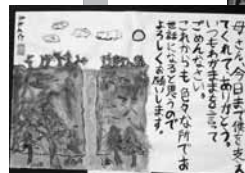 母さん、今日まで僕を支え
てくれて、ありがとう。
いつもわがままを言って
ごめんなさい。
これからも色々な所でお
世話になると思うので
よろしくお願いします。